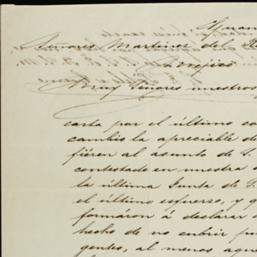 Señores Martinez del
Muy Señores nuestros
carta por el último co
cambio la apreciable de
fiéren al asunto de
contestado en nuestra
la última Junta de
el último esfuerzo, y q
formáron á declarar
hecho de no cubrir
gentes, al menos aque